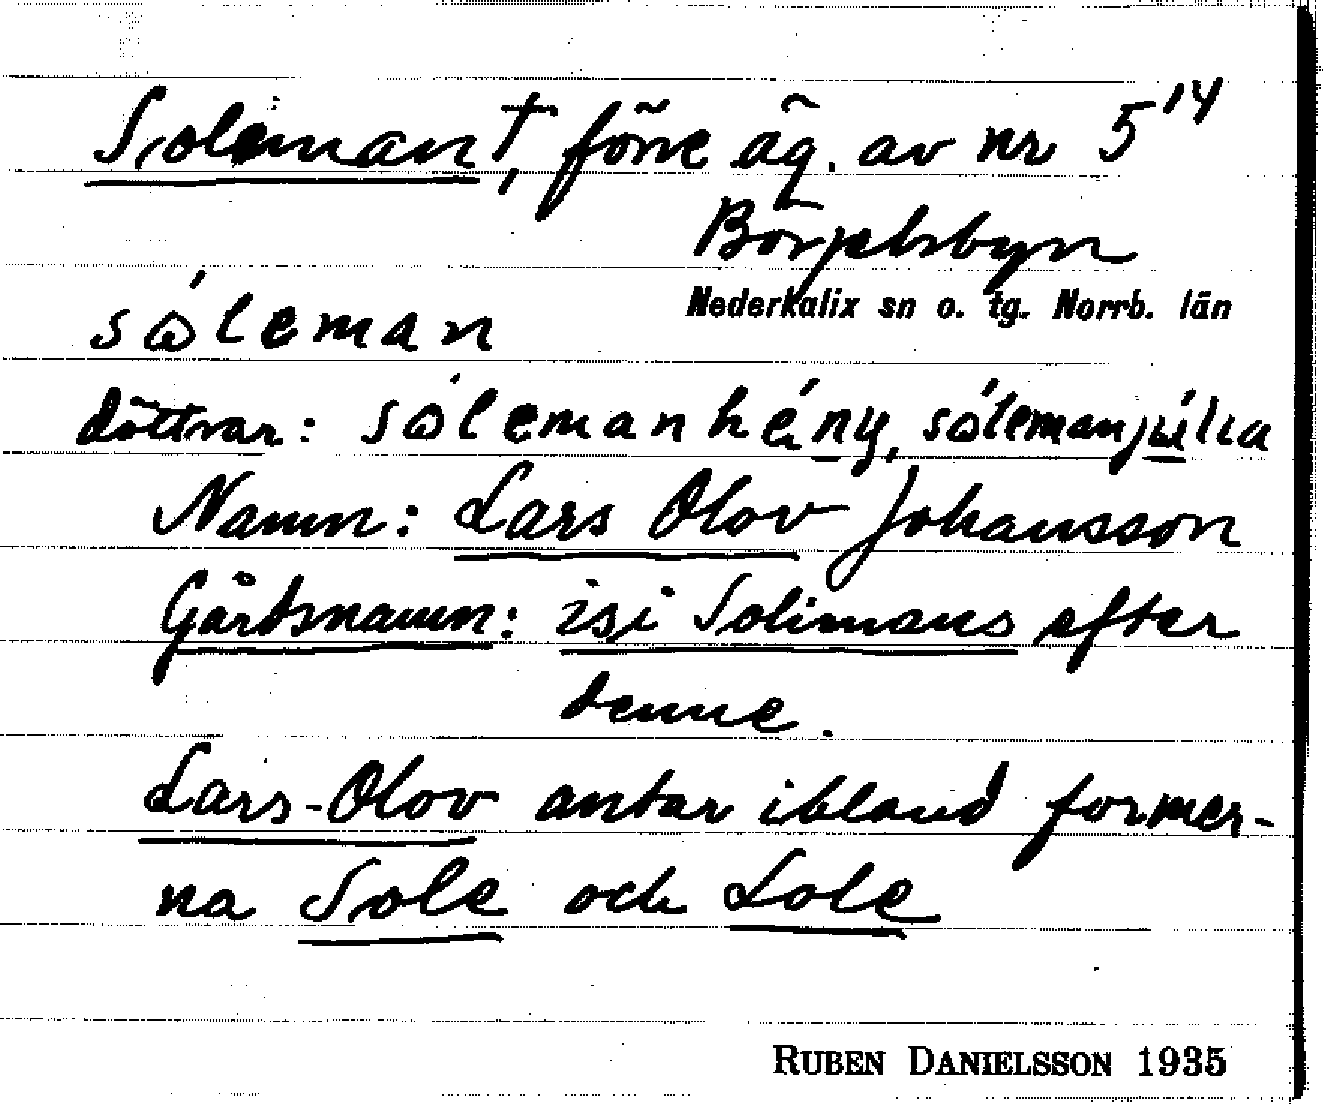 Soleman †, förre äg. av nr 5¹⁴
Börjelsbyn
Nederkalix sn o. tg. Norrb. län
sóleman
döttrar: sólemanhény, sólemanjúlia
Namn: Lars Olov Johansson
Gårdsnamn: isi Solimans efter
denne.
Lars-Olov antar ibland former-
na Sole och Lole
RUBEN DANIELSSON 1935